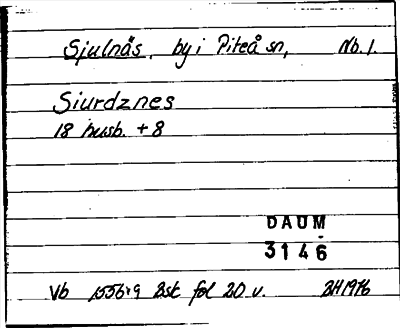 Sjulnäs, by i Piteå sn, Nb.
Siurdznes
18 husb. + 8
DAUM
3146
Vb 1556:9 Bst fol 20 v. BH 1976